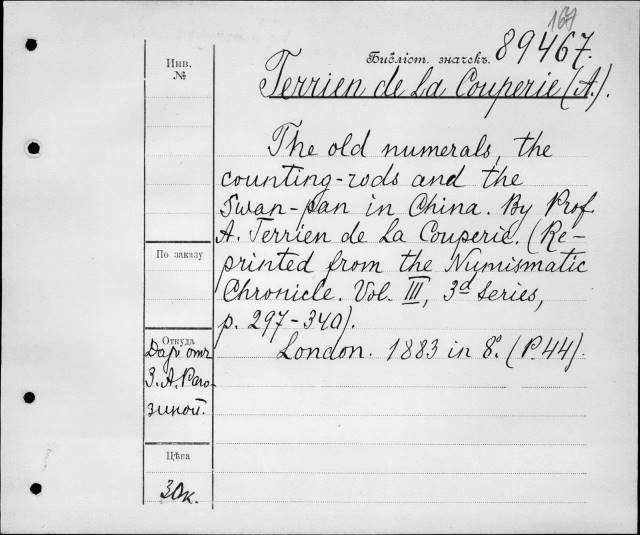 169
Библіот. значекъ. 89467.
Terrien de La Couperie (A.).
The old numerals, the
counting-rods and the
Swan-pan in China. By Prof.
A. Terrien de La Couperie. (Re-
printed from the Numismatic
Chronicle. Vol. III, 3d Series,
p. 297-340).
London. 1883 in 8°. (P. 44).
Инв.
№
По заказу
Откуда
Даръ отъ
З. А. Раго-
зиной.
Цѣна
30к.